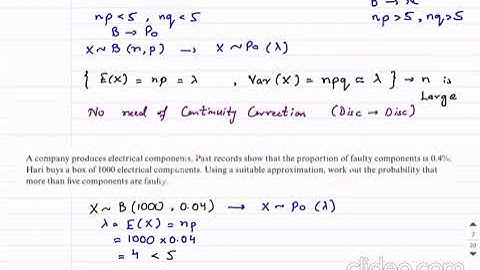 np < 5 , nq < 5
B → Po
X ~ B (n, p) → X ~ Po (λ)
np > 5 , nq > 5
{ E(X) = np = λ , Var (X) = npq ≈ λ } → n is
Large
No need of Continuity Correction (Disc → Disc)
A company produces electrical components. Past records show that the proportion of faulty components is 0.4%.
Hari buys a box of 1000 electrical components. Using a suitable approximation, work out the probability that
more than five components are faulty.
X ~ B (1000, 0.04) → X ~ Po (λ)
λ = E(X) = np
= 1000 x 0.04
= 4 < 5
7
20
clideo.com